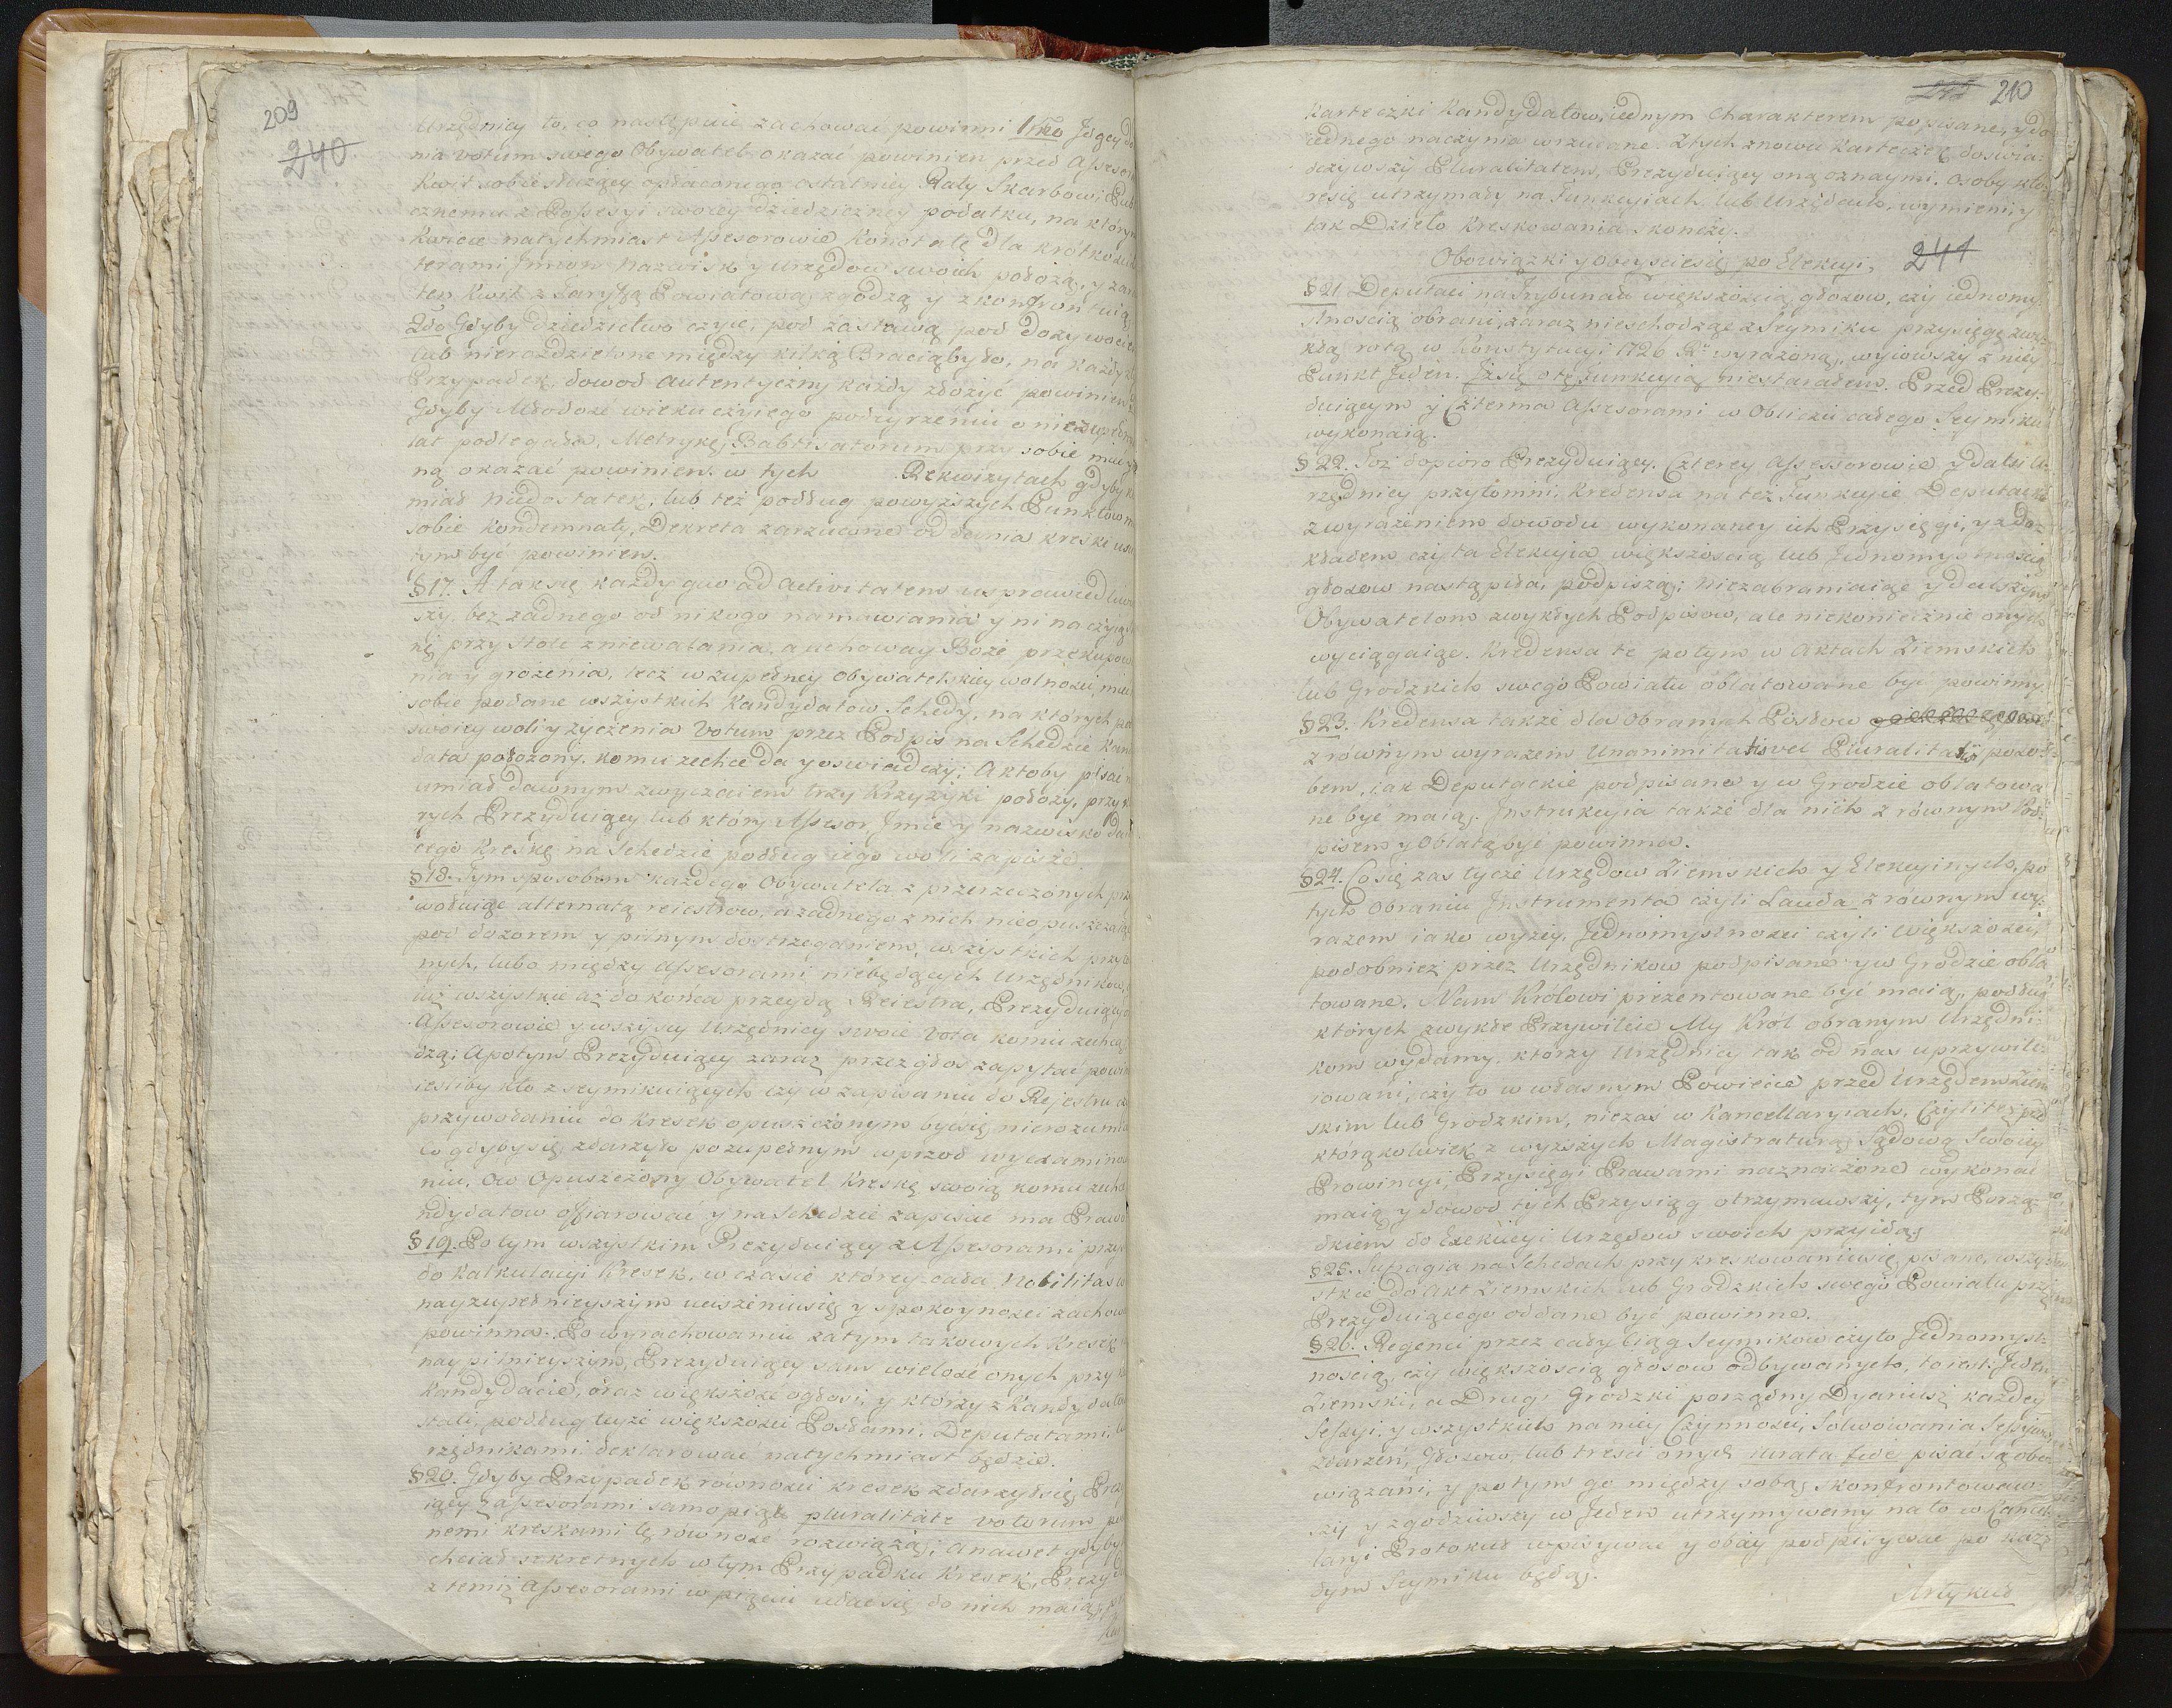 209
240
Urzędnicy to, co następuie zachować powinni 1mo Jdący do
nia votum swego Obywatel okazać powinien przed Assesor
Kwit sobie służący opłaconego ostatniey Raty Skarbowi Pub
cznemu z Possesyi swoiey dziedziczney podatku, na którym
kwicie natychmiast Assesorowie konotatę dla krótkości
terami Jmion Nazwisk y urzędow swoich położą, y zara
ten kwit z Taryffą Powiatową zgodzą y zkonfrontuią
2do Gdyby dziedzictwo czyie, pod zastawą pod dożywociem
lub nierozdzielone między kilką Bracią było, na każdy
Przypadek, dowod autentyczny każdy złożyć powinien
Gdyby Młodość wieku czyiego podeyrzeniu o niezupełn
lat podlegała, Metrykę Babtisatorum przy sobie mie
ną okazać powinien. w tych Rekwizytach gdyby k
miał niedostatek, lub też podług powyższych Punktow m
sobie kondemnaty, Dekreta zarzucone od dania kreski usu
tym być powinien.
§ 17. A tak się każdy quo ad activitatem usprawiedliwi
szy, bez żadnego od nikogo namawiania y ni na czyią
nę przy stole zniewalania, a uchoway Boże przekupow
nia y grożenia, lecz w zupełney Obywatelskiey wolności, mie
sobie podane wszystkich Kandydatow Schedy, na których po
swoiey woli y życzenia Votum przez Podpis na Schedzie Kan
data położony. komu zechce da y oświadczy; A ktoby pisać n
umiał dawnym zwyczaiem trzy Krzyżyki położy, przy k
rych Prezyduiący lub który Assesor Jmie y nazwisko da
cego kreskę na Schedzie podług iego woli zapisze
§ 18. Tym sposobem każdego Obywatela z przerzeczonych prz
wołuiąc alternatą reiestrow, a żadnego z nich nieopuszczaiąc
pod dozorem y pilnym dostrzeganiem, wszystkich przyto
mnych, lubo między Assesorami niebędących Urzędnikow,
iuż wszystkie aż do końca przeydą Reiestra, Prezyduiący
Assesorowie y wszyscy Urzędnicy swoie Vota komu zechcą
dzą; A potym Prezyduiący zaraz przez głos zapytać powin
iesliby kto z seymikuiących czy w zapisaniu do Rejestru c
przywołaniu do kresek opuszczonym być się nierozumia
Co gdyby się zdarzyło po zupełnym wprzod wyexamino
niu, Ow Opuszczony Obywatel kreskę swoią komu zech
ndydatow offiarować y na Schedzie zapisać ma Prawo
§ 19. Po tym wszystkim Prezyduiący z Assesorami przy
do kalkulacyi kresek, w czasie którey cała Nobilitas w
nayzupełnieyszym uciszeniu się y spokoyności zachow
powinna. Po wyrachowaniu zatym takowych kresek
naypilnieyszym, Prezyduiący sam wielość onych przy k
Kandydacie, oraz większość ogłosi, y którzy z Kandydato
stali, podług teyże większości Posłami, Deputatami, U
rzędnikami deklarować natychmiast będzie.
§ 20. Gdyby Przypadek równości kresek zdarzył się, Prezy
iący z Assesorami samopiąt pluralitate votorum
nemi kreskami tę równość rozwiążą; a nawet gdyby
chciał sekretnych w tym Przypadku kresek, Prezy
z temiż Assesorami w pięciu udać się do nich maią,
210
Karteczki Kandydatow, iednym Charakterem popisane, y do
iednego naczynia wrzucone. Z tych znowu Karteczek doświa-
dczywszy Pluralitatem, Prezyduiący oną oznaymi. Osoby któ-
re się utrzymały na Funkcyiach lub Urzędach, wymieni, y
tak Dzieło kreskowania skończy.
Obowiązki y obeyście się po Elekcyi. 241
§ 21. Deputaci na Trybunał większością głosow, czy iednomy-
slnością obrani, zaraz nieschodząc z Seymiku przysięgę zwy-
kłą rotą w Konstytucyi 1726 Ru wyrażoną, wyiowszy z niey
Punkt Jeden. Jż się o tę Funkcyią niestarałem. Przed Prezy-
duiącym y Czterma Assesorami w Obliczu całego Seymiku
wykonaią.
§ 22. Toż dopiero Prezyduiący. Czterey Assessorowie y dalsi U-
rzędnicy przytomni, Kredensa na też Funkcyie Deputackie
z wyrażeniem dowodu wykonaney ich Przysięgi, y z do-
kładem czy ta Elekcyia większością lub Jednomyslnością
głosow nastąpiła, podpiszą; niezabraniaiąc y dalszym
Obywatelom zwykłych Podpisow, ale niekoniecznie onych
wyciągaiąc. Kredensa te potym w Aktach Ziemskich
lub Grodzkich swego Powiatu oblatowane być powinny.
§ 23. Kredensa także dla Obranych Posłow
z równym wyrazem Unanimitatis vel Pluralitatis podo-
bem, iak Deputackie podpisane y w Grodzie oblatowa
ne być maią. Jnstrukcyia także dla nich z równym Pod-
pisem y Oblatą być powinna.
§ 24. Co się zas tycze Urzędow Ziemskich y Elekcyinych, po
tych Obraniu Jnstrumenta czyli Lauda z równym wy-
razem iako wyżey. Jednomyslności czyli Większości,
podobnież przez Urzędnikow podpisane y w Grodzie obla
towane, Nam Krolowi prezentowane być maią, podług
których zwykłe Przywileie My Król obranym Urzędni-
kom wydamy. którzy Urzędnicy tak od nas uprzywile-
iowani, czy to w własnym Powiecie przed Urzędem Ziem
skim lub Grodzkim, nie zaś w Kancellaryiach, Czyli też przed
którąkolwiek z wyższych Magistraturą Sądową Swoiey
Prowincyi, Przysięgi Prawami naznaczone wykonać
maią y dowod tych Przysiąg otrzymawszy, tym Porzą-
dkiem do Exekucyi Urzędow swoich przyidą.
§ 25. Sufragia na Schedach przy kreskowaniu się pisane, wszy-
stkie do Akt Ziemskich lub Grodzkich swego Powiatu przez
Prezyduiącego oddane być powinne.
§ 26. Regenci przez cały Ciąg Seymikow czy to Jednomysl-
nością, czy większością głosow odbywanych, to iest: Jeden
Ziemski, a Drugi Grodzki porządny Dyariusz każdey
Sessyi, y wszystkich na niey Czynności, Solwowania Sessyiow
zdarzeń, Głosow, lub tresci onych iurata fide pisać są obo
wiązani, y potym go między sobą skonfrontowaw
szy y zgodziwszy w Jeden utrzymywany na to w Kancel
laryi Protokuł wpisywać y obay podpisywać po każ-
dym Seymiku będą.
Artykuł